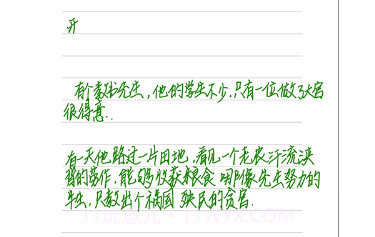 开
有个教书先生，他的学生不少，只有一位做了大官
很得意..
有一天他路过一片田地，看见一个老农汗流浃
背的劳作，能够收获粮食 哪像先生努力的
半生，只教出个祸国 殃民的贪官.